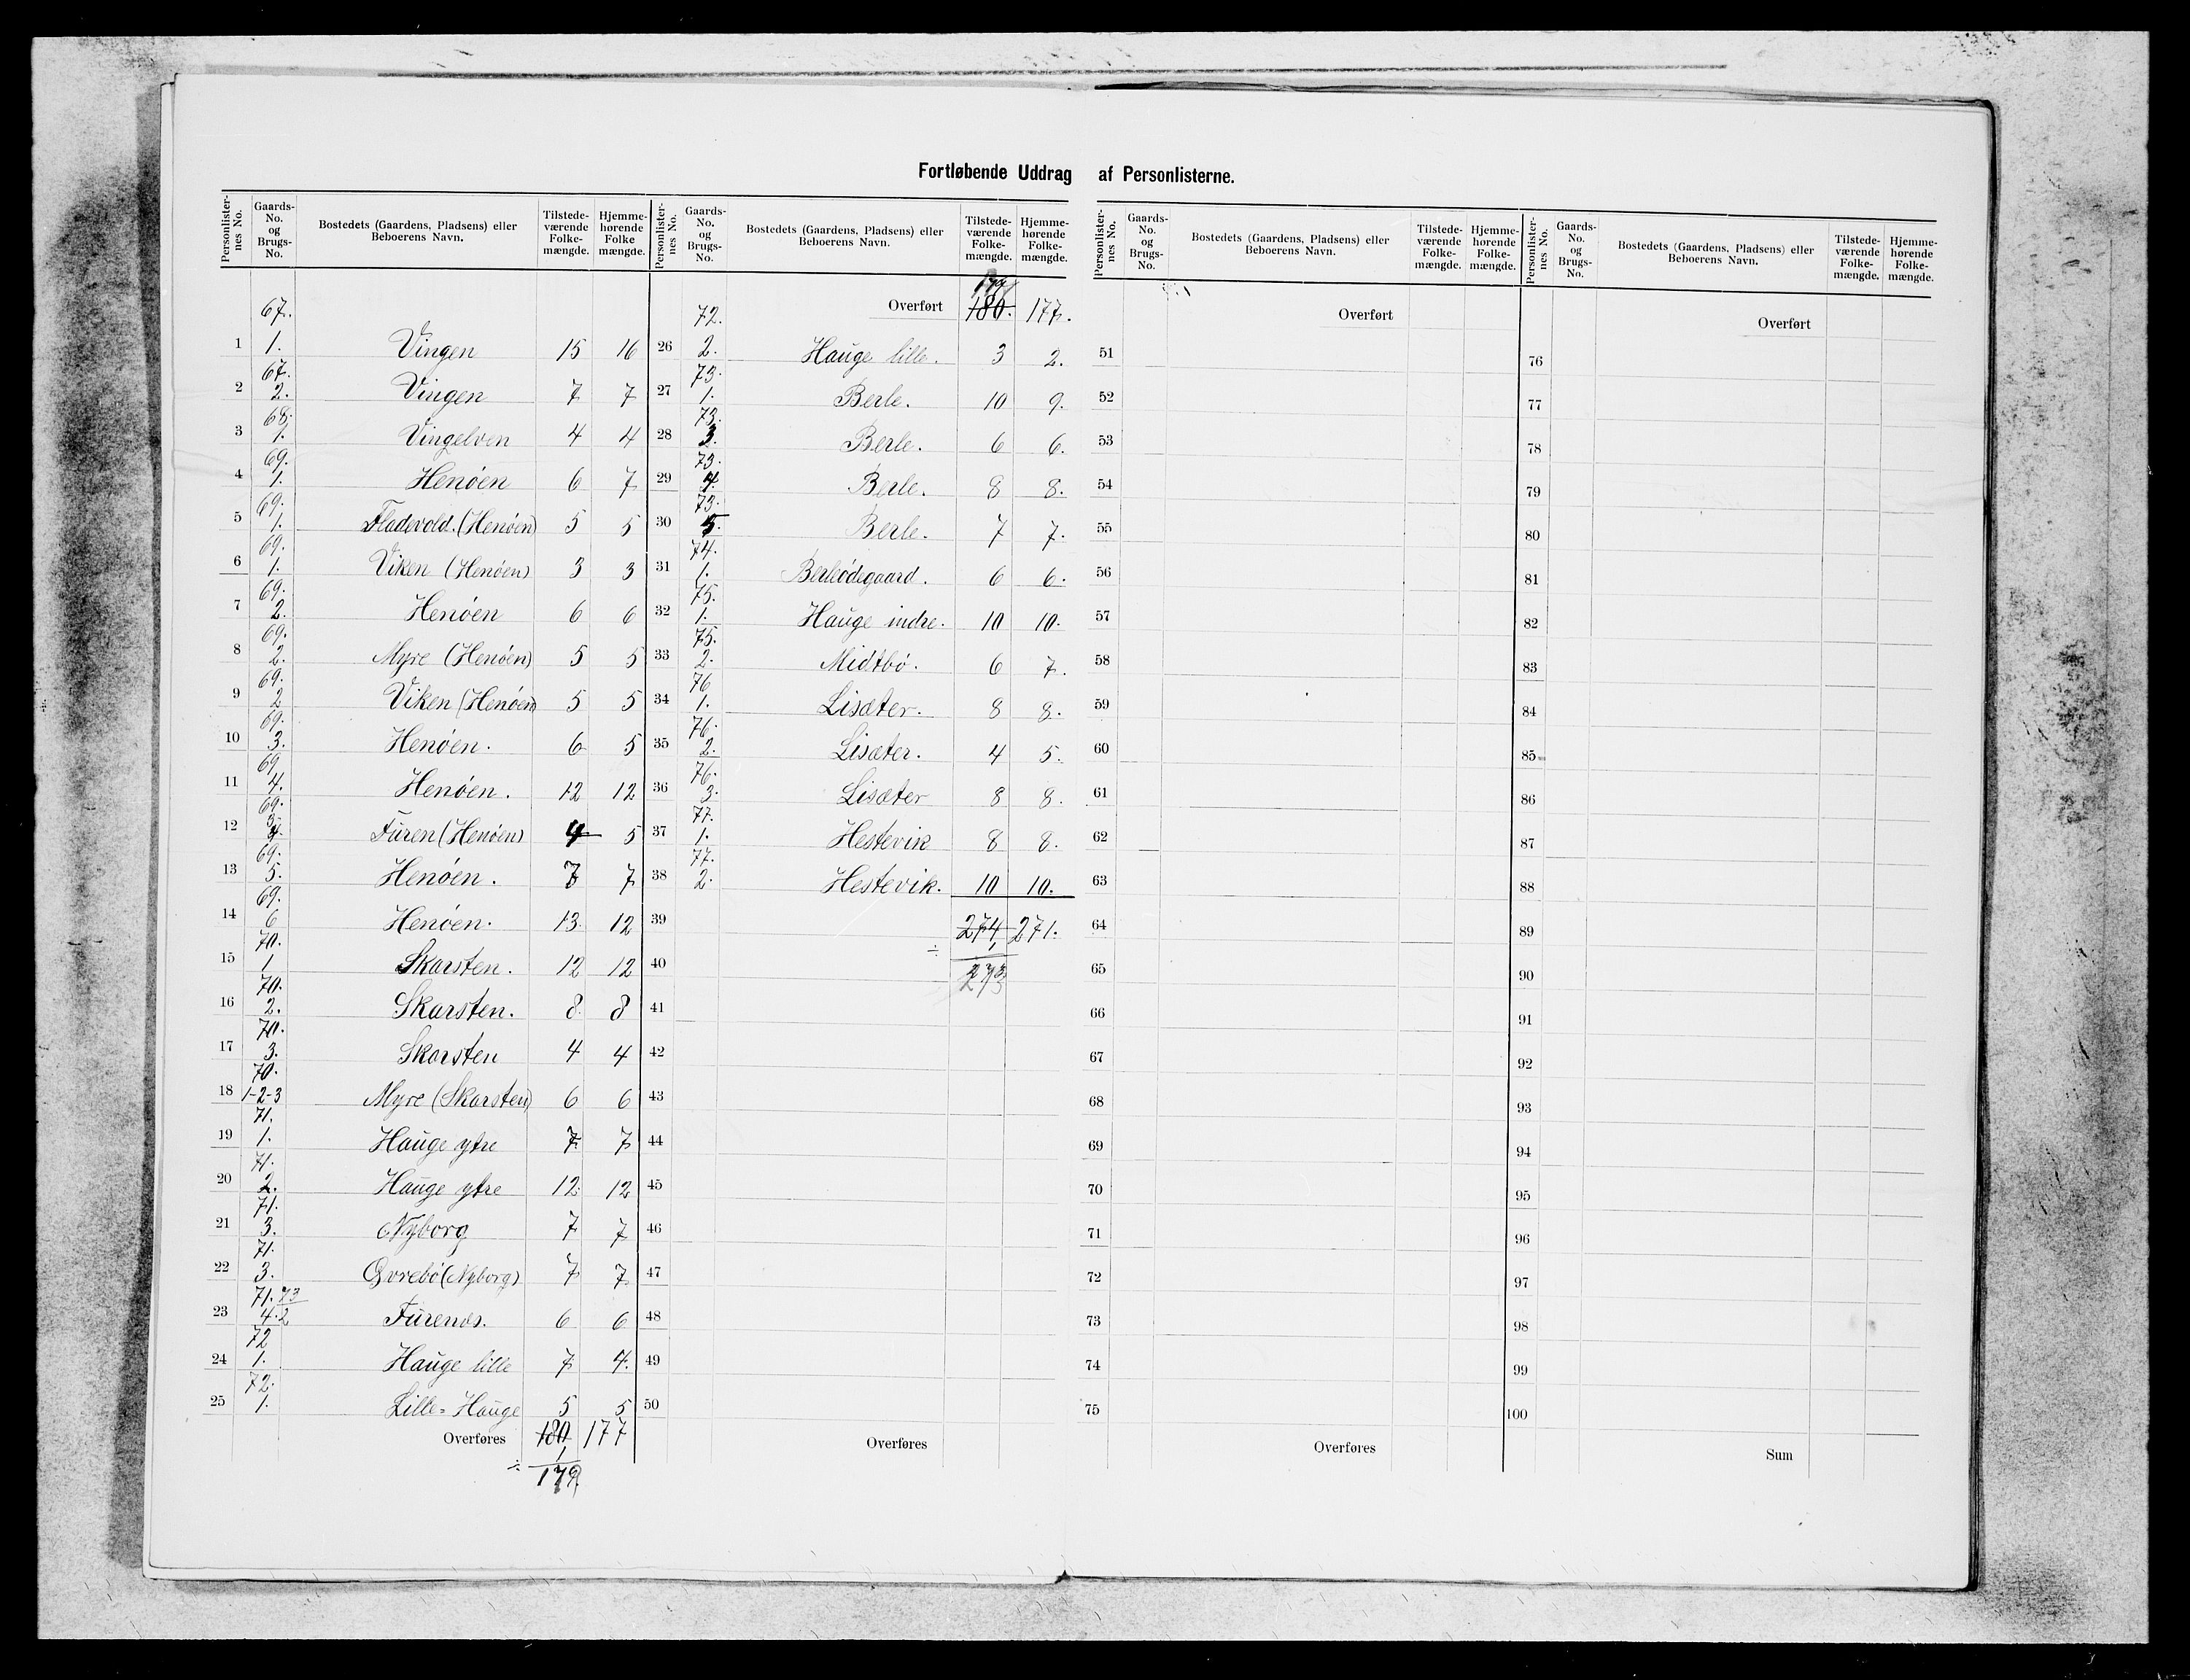 Fortløbende Uddrag af Personlisterne.
Personlister-nes No. | Gaards-No. og Brugs-No. | Bostedets (Gaardens, Pladsens) eller Beboerens Navn. | Tilstede-værende Folke-mængde. | Hjemme-hørende Folke mængde.
1 | 67. 1. | Vingen | 15 | 16
2 | 67. 2. | Vingen | 7 | 7
3 | 68. 1. | Vingelven | 4 | 4
4 | 69. 1. | Henøen | 6 | 7
5 | 69. 1. | Fladevold. (Henøen) | 5 | 5
6 | 69. 1. | Viken (Henøen) | 3 | 3
7 | 69. 2. | Henøen | 6 | 6
8 | 69. 2. | Myre (Henøen) | 5 | 5
9 | 69. 2 | Viken (Henøen) | 5 | 5
10 | 69. 3. | Henøen. | 6 | 5
11 | 69 4. | Henøen. | 12 | 12
12 | 69. | Furen (Henøen) | 4 | 5
13 | 69. 5. | Henøen. | 7 | 7
14 | 69. 6 | Henøen. | 13 | 12
15 | 70. 1 | Skarsten. | 12 | 12
16 | 70. 2. | Skarsten. | 8 | 8
17 | 70. 3. | Skarsten | 4 | 4
18 | 70. 1-2-3 | Myre (Skarsten) | 6 | 6
19 | 71. 1. | Hauge ytre | 7 | 7
20 | 71. 2. | Hauge ytre | 12 | 12
21 | 71. 3. | Nyborg | 7 | 7
22 | 71. 3. | Øvrebø (Nyborg) | 7 | 7
23 | 71. 73 4. 2 | Furenes. | 6 | 6
24 | 72 1. | Hauge lille | 7 | 4.
25 | 72. 1. | Lille-Hauge | 5 | 5
Overføres | 180 | 177
÷ 1
179
Personlister-nes No. | Gaards-No. og Brugs-No. | Bostedets (Gaardens, Pladsens) eller Beboerens Navn. | Tilstede-værende Folke-mængde. | Hjemme-hørende Folke-mængde.
179
Overført | 180. | 177.
26 | 72. 2. | Hauge lille. | 3 | 2.
27 | 73. 1. | Berle. | 10 | 9.
28 | 73. 3. | Berle. | 6 | 6.
29 | 73. 4. | Berle. | 8 | 8.
30 | 73. 5. | Berle. | 7 | 7.
31 | 74. 1. | Berleødegaard. | 6 | 6.
32 | 75. 1. | Hauge indre. | 10 | 10.
33 | 75. 2. | Midtbø. | 6 | 7.
34 | 76 1. | Lisæter. | 8 | 8.
35 | 76. 2. | Lisæter. | 4 | 5.
36 | 76. 3. | Lisæter | 8 | 8.
37 | 77. 1. | Hestevik | 8 | 8.
38 | 77. 2. | Hestevik. | 10 | 10.
39 | 274 | 271.
÷ 1
40 | 273
41
42
43
44
45
46
47
48
49
50
Overføres
Personlister-nes No. | Gaards-No. og Brugs-No. | Bostedets (Gaardens, Pladsens) eller Beboerens Navn. | Tilstede-værende Folke-mængde. | Hjemme-hørende Folke-mængde.
Overført
51
52
53
54
55
56
57
58
59
60
61
62
63
64
65
66
67
68
69
70
71
72
73
74
75
Overføres
Personlister-nes No. | Gaards-No. og Brugs-No. | Bostedets (Gaardens, Pladsens) eller Beboerens Navn. | Tilstede-værende Folke-mængde. | Hjemme-hørende Folke-mængde.
Overført
76
77
78
79
80
81
82
83
84
85
86
87
88
89
90
91
92
93
94
95
96
97
98
99
100
Sum